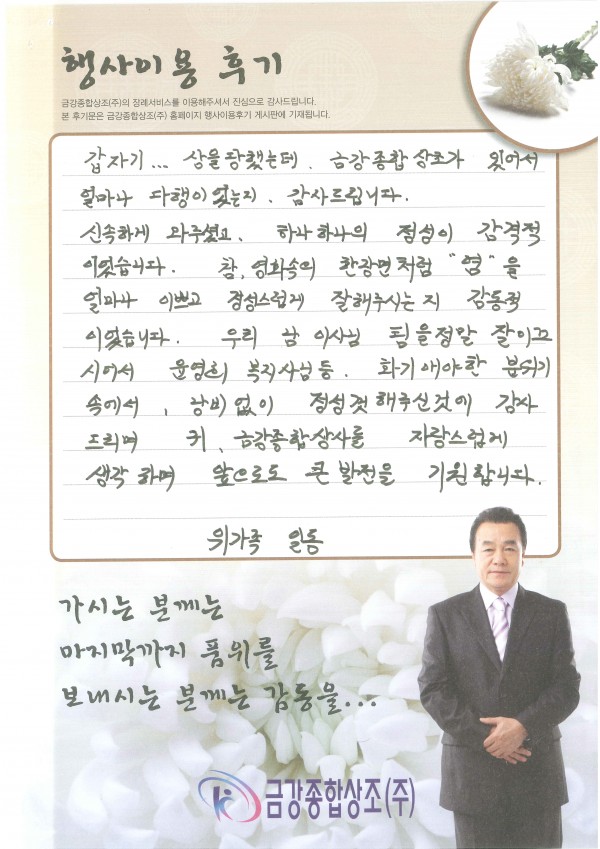 행사이용 후기
금강종합상조(주)의 장례서비스를 이용해주셔서 진심으로 감사드립니다.
본 후기문은 금강종합상조(주) 홈페이지 행사이용후기 게시판에 기재됩니다.
갑자기... 상을 당했는데, 금강종합상조가 있어서
얼마나 다행이었는지, 감사드립니다.
신속하게 와주셨고, 하나하나의 정성이 감격적
이었습니다. 참, 영화속의 한장면처럼 "염"을
얼마나 이쁘고 정성스럽게 잘해주시는지 감동적
이었습니다. 우리 남 이사님 팀을 정말 잘이끄
시어서 윤영희 복지사님등. 화기애애한 분위기
속에서, 낭비없이 정성껏 해주신것에 감사
드리며 귀, 금강종합상사를 자랑스럽게
생각하며 앞으로도 큰 발전을 기원합니다.
위가족 일동
가시는 분께는
마지막까지 품위를
보내시는 분께는 감동을...
금강종합상조(주)